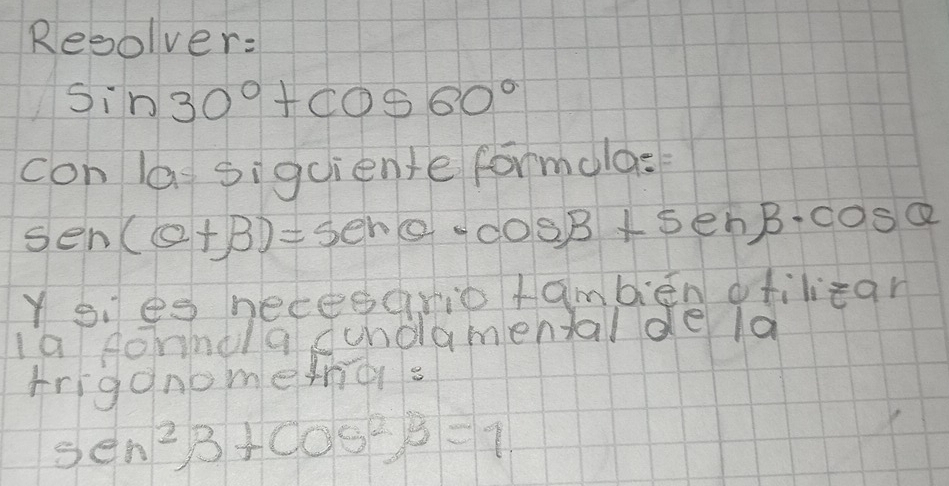 Resolver:
Sin30°+cos60°
con la siguiente fórmula:
sen(α+β)=senα·cosβ+senβ·cosα
Y si es necesario también utilizar
la fórmula fundamental de la
trigonometría:
sen²β+cos²β=1